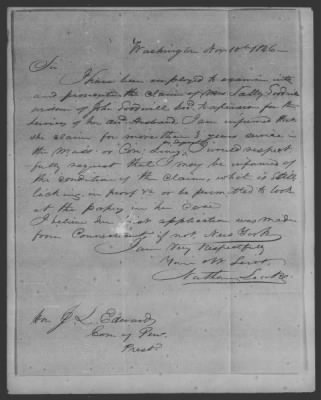 Washington Nov 10th 1846
Sir
I have been employed to examine into
and prosecute the claim of Mrs Sally Goodwill
widow of John Goodwill decd to a pension for the
services of her said Husband. I am informed that
she claims for more than 3 years service in
the Mass or Con Line I would respect
fully request that I may be informed of
the condition of the claim, what is still
lacking in proof &c or be permitted to look
at the papers in her case
I believe her first application was made
from Connecticut if not, New York
I am Very Respectfully
Your Obt Servt
Nathan
Hon J L Edwards
Com of Pen
Prest